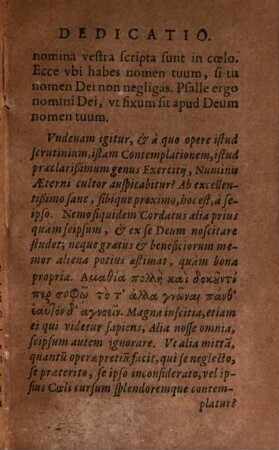 DEDICATIO.
nomina vestra scripta sunt in cœlo.
Ecce vbi habes nomen tuum, si tu
nomen Dei non negligas. Psalle ergo
nomini Dei, vt fixum sit apud Deum
nomen tuum.
Vndenam igitur, & à quo opere istud
scrutinium, istam Contemplationem, istud
præclarissimum genus Exercitÿ, Numinis
Æterni cultor auspicabitur? Ab excellen-
tissimo sane, sibique proximo, hoc est, à se-
ipso. Nemo siquidem Cordatus alia prius
quàm seipsum, & ex se Deum noscitare
studet; neque gratus & beneficiorum me-
mor aliena potius æstimat, quam bona
propria. Ἀμαθία πολλὴ καὶ δοκοῦντι
περ σοφῷ τὸ τ' ἄλλα γνῶναι πάνθ'
ἑαυτὸν δ' ἀγνοεῖν. Magna inscitia, etiam
ei qui videtur sapiens, Alia nosse omnia,
seipsum autem ignorare. Vt alia mittã,
quantũ operæpretiũ facit, qui se neglecto,
se præterito, se ipso inconsiderato, vel ip-
sius Cœli cursum splendoremque contem-
platur?